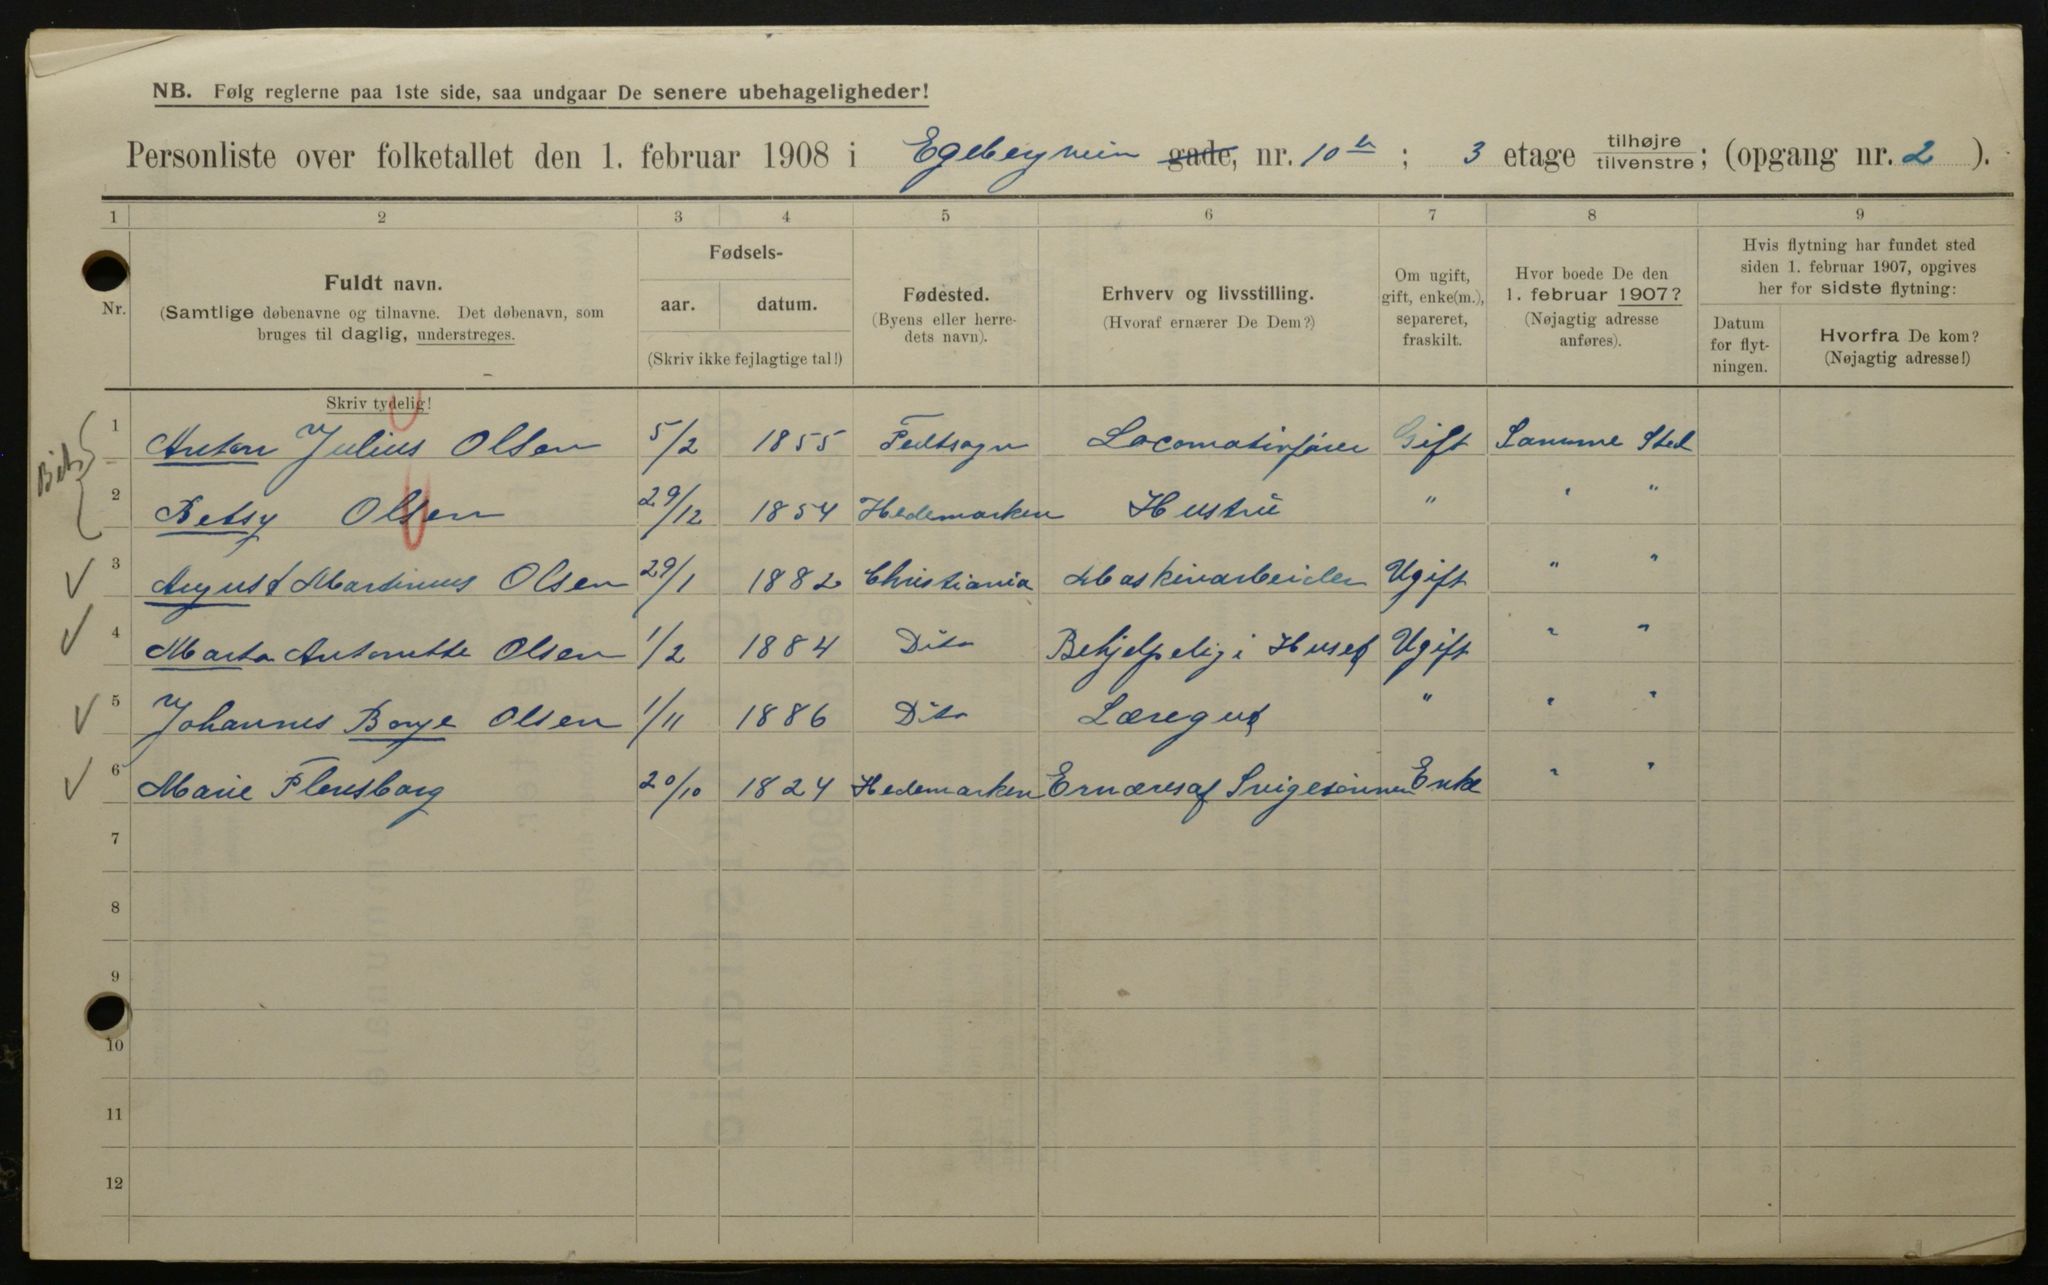 NB. Følg reglerne paa 1ste side, saa undgaar De senere ubehageligheder!
Personliste over folketallet den 1. februar 1908 i Egebergvein gade, nr. 10 b ; 3 etage tilhøjre tilvenstre; (opgang nr. 2 ).
1 2 3 4 5 6 7 8 9
Nr. Fuldt navn. (Samtlige døbenavne og tilnavne. Det døbenavn, som bruges til daglig, understreges.
Fødsels-
aar. datum.
(Skriv ikke fejlagtige tal!)
Fødested. (Byens eller herredets navn).
Erhverv og livsstilling. (Hvoraf ernærer De Dem?)
Om ugift, gift, enke(m.), separeret, fraskilt.
Hvor boede De den 1. februar 1907? (Nøjagtig adresse anføres).
Hvis flytning har fundet sted siden 1. februar 1907, opgives her for sidste flytning:
Datum for flytningen.
Hvorfra De kom? (Nøjagtig adresse!)
Skriv tydelig!
1 Anton Julius Olsen 5/2 1855 Locomotivfører Gift Samme Sted
2 Betsy Olsen 29/12 1854 Hedemarken Hustru " " "
3 August Martinius Olsen 29/1 1882 Christiania Maskinarbeider Ugift " "
4 Marta Antonette Olsen 1/2 1884 Dito Behjelpelig i Huset Ugift " "
5 Johannes Borge Olsen 1/11 1886 Dito Læregut " " "
6 Marie Flensborg 20/10 1824 Hedemarken Ernæres af Svigesønnen Enke " "
7
8
9
10
11
12